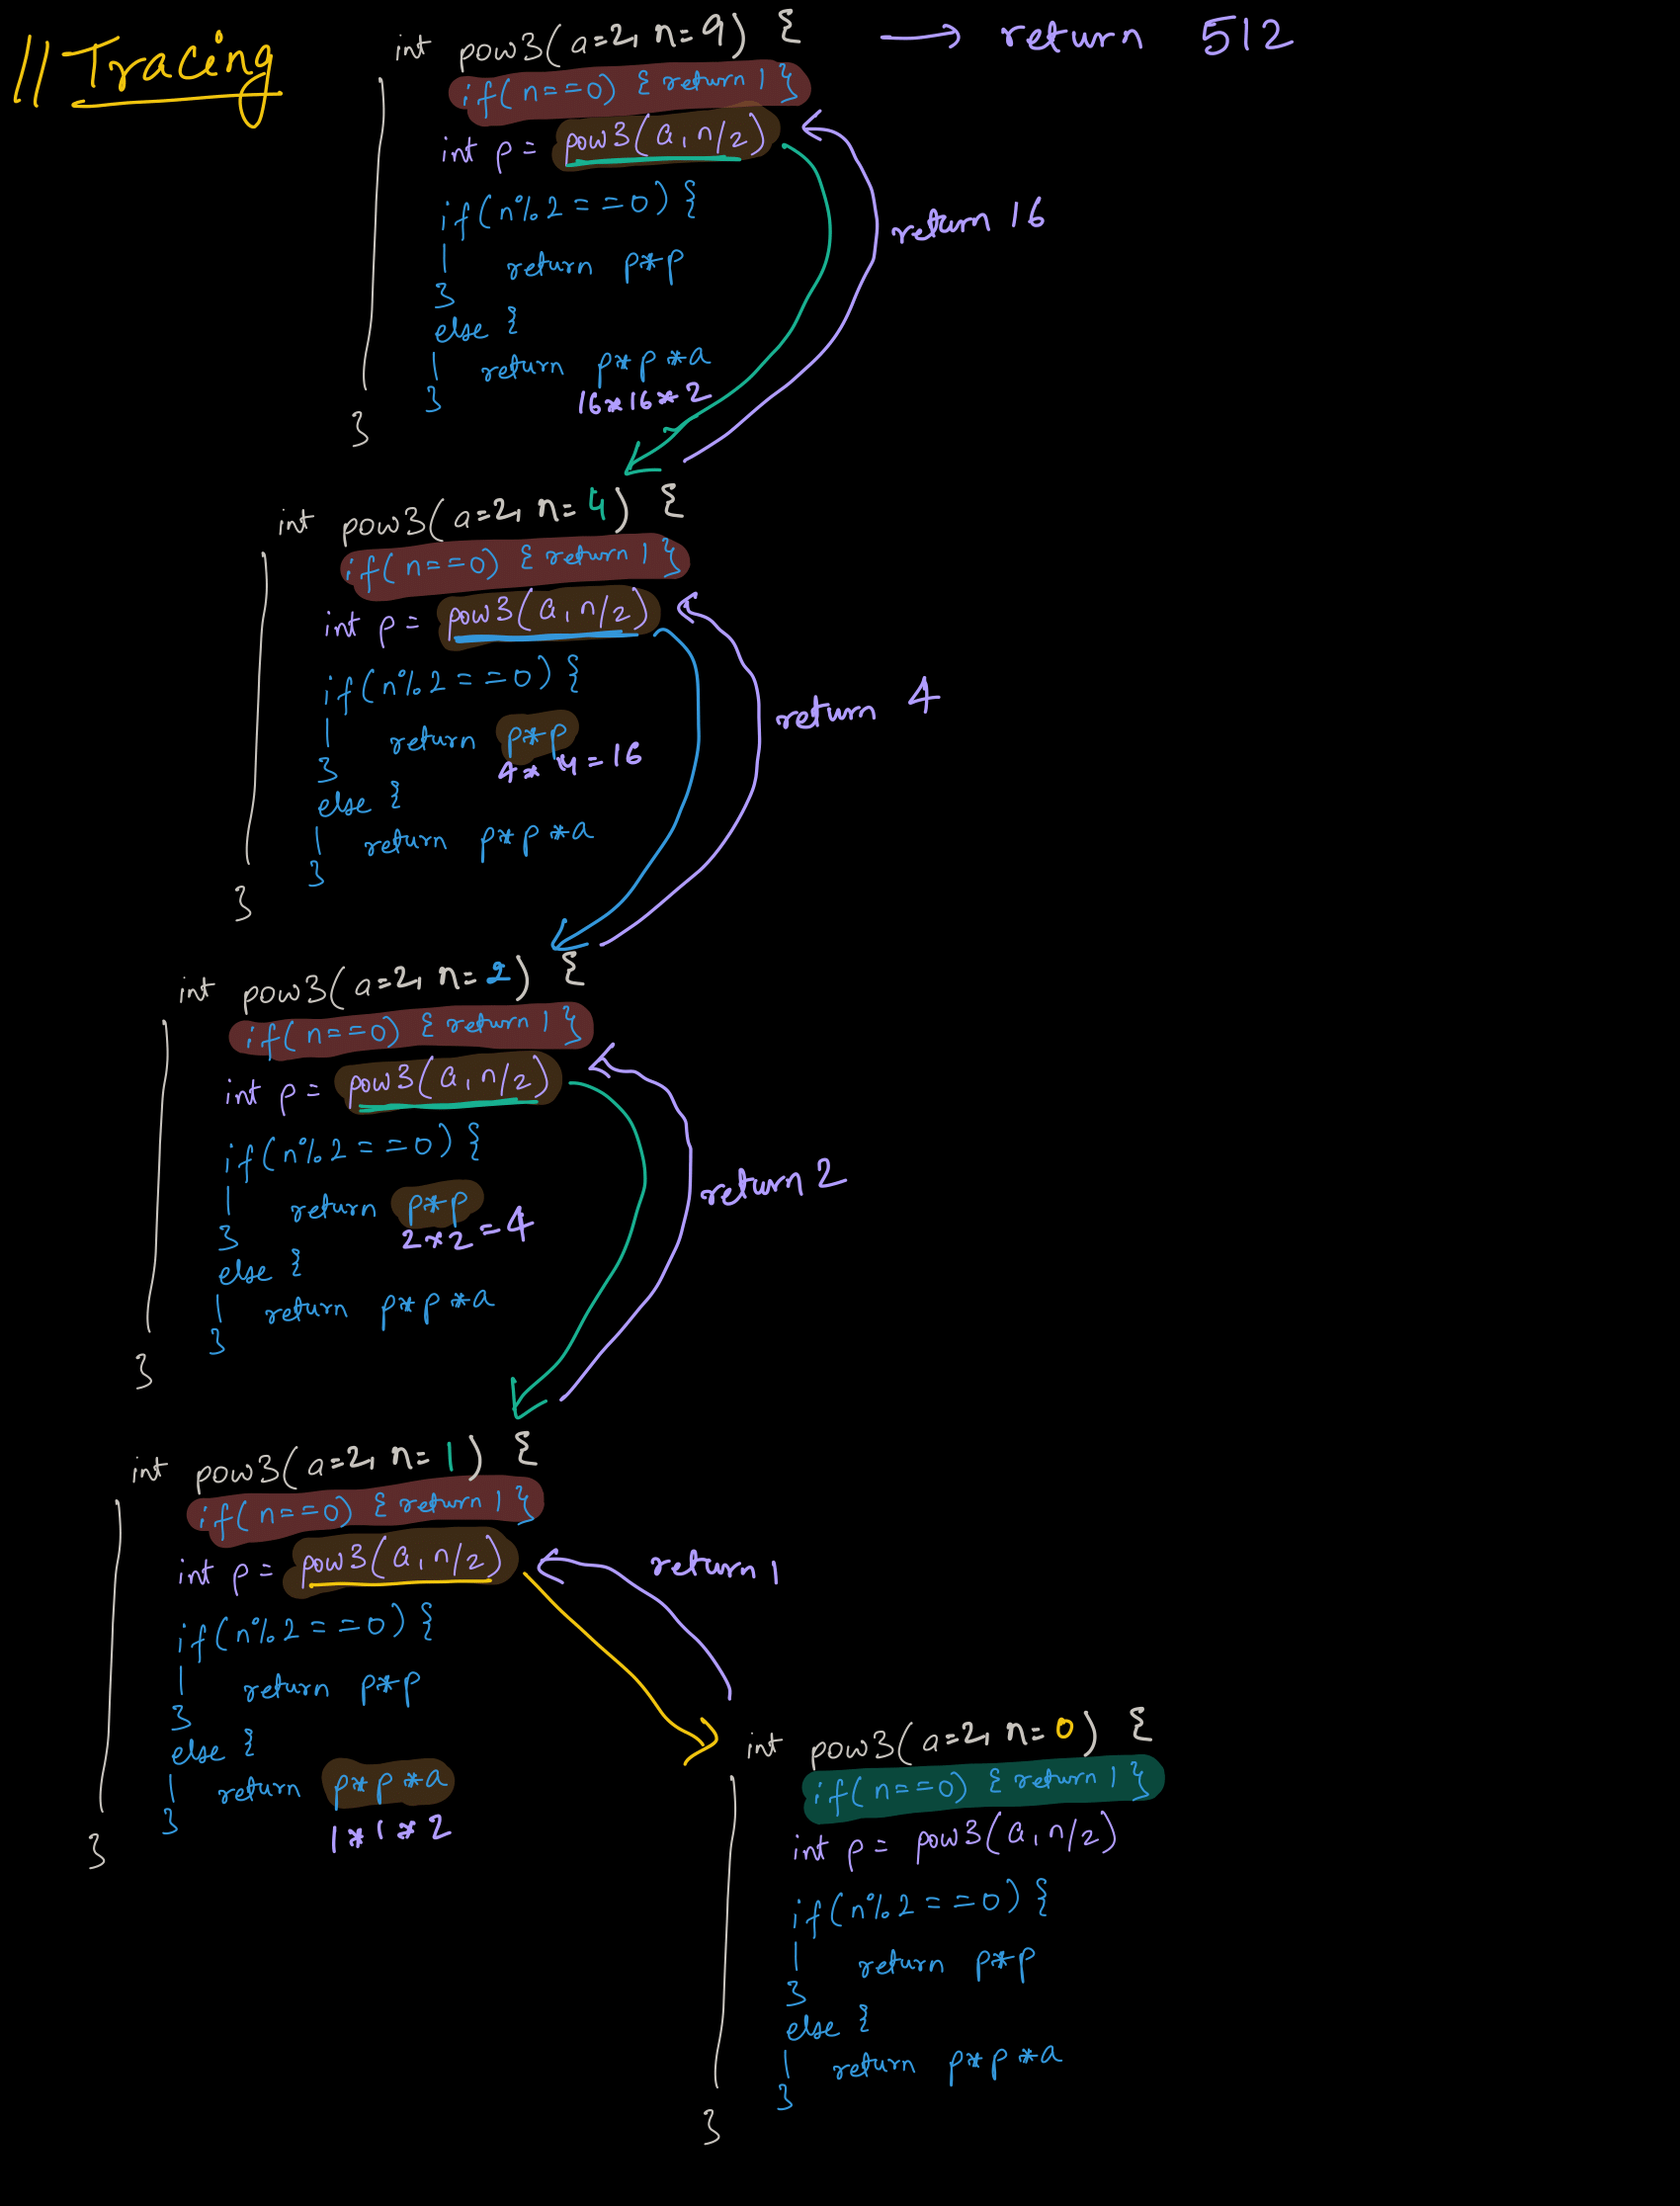 // Tracing
int pow3(a=2, n=9) { → return 512
if(n==0) { return 1 }
int p = pow3(a, n/2)
return 16
if(n%2==0) {
return p*p
}
else {
return p*p*a
16*16*2
}
}
int pow3(a=2, n=4) {
if(n==0) { return 1 }
int p = pow3(a, n/2)
if(n%2==0) {
return 4
return p*p
4*4=16
}
else {
return p*p*a
}
}
int pow3(a=2, n=2) {
if(n==0) { return 1 }
int p = pow3(a, n/2)
if(n%2==0) {
return 2
return p*p
2*2=4
}
else {
return p*p*a
}
}
int pow3(a=2, n=1) {
if(n==0) { return 1 }
int p = pow3(a, n/2)
return 1
if(n%2==0) {
return p*p
}
else {
return p*p*a
1*1*2
}
}
int pow3(a=2, n=0) {
if(n==0) { return 1 }
int p = pow3(a, n/2)
if(n%2==0) {
return p*p
}
else {
return p*p*a
}
}